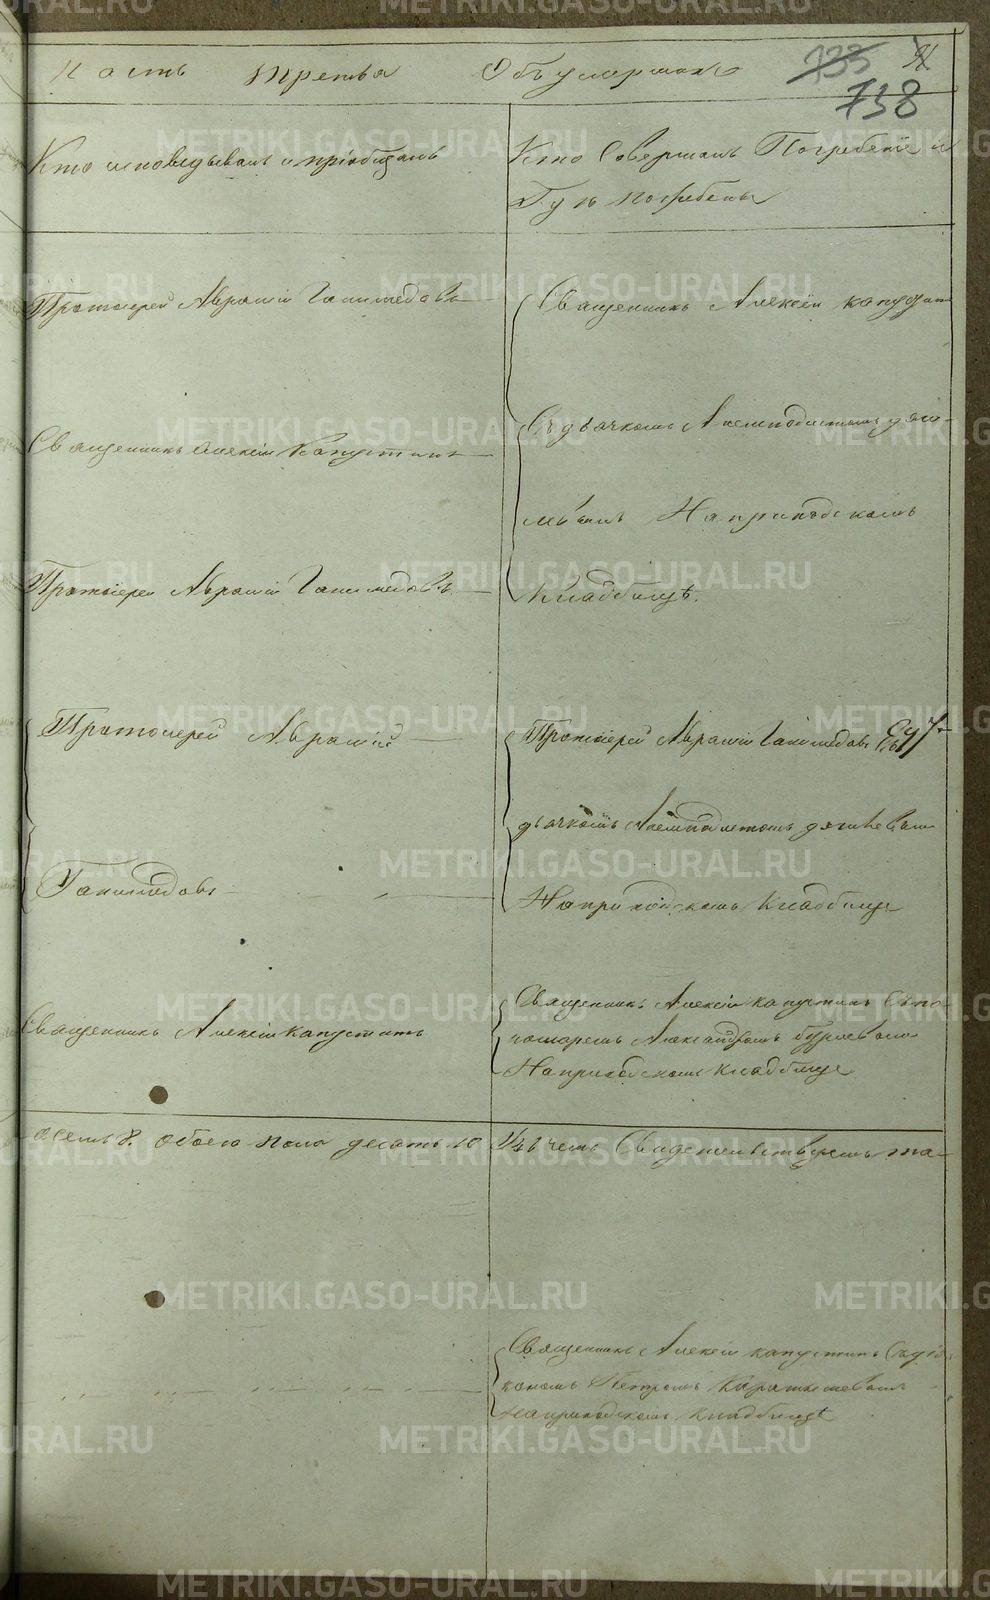 Часть третья О бъ умершихъ 733 738
Кто исповѣдывалъ и пріобщалъ
Кто Совершалъ Погребеніе и
Гдѣ погребены
Протоіерей Аврамій Ганимедовъ
Священникъ Алексѣй Капустин
Священникъ Алексій Капустинъ
Съ дьячкомъ
На приходскомъ
Протоіерей Аврамій Ганимедовъ
Кладбищѣ.
Протоіерей Аврамій
Протоіерей Аврамій Ганимедовъ Съ
дьячкомъ
Ганимедовъ
На приходскомъ Кладбище
Священникъ Алексій Капустинъ
Священникъ Алексій Капустинъ Съ по
номаремъ Александромъ
На приходскомъ Кладбище
осемь 8. обоего пола десять 10
Въ чемъ Свидетельствуемъ та-
Священникъ Алексій Капустинъ Съ діа
кономъ Петромъ
На приходскомъ кладбищѣ
METRIKI.GASO-URAL.RU